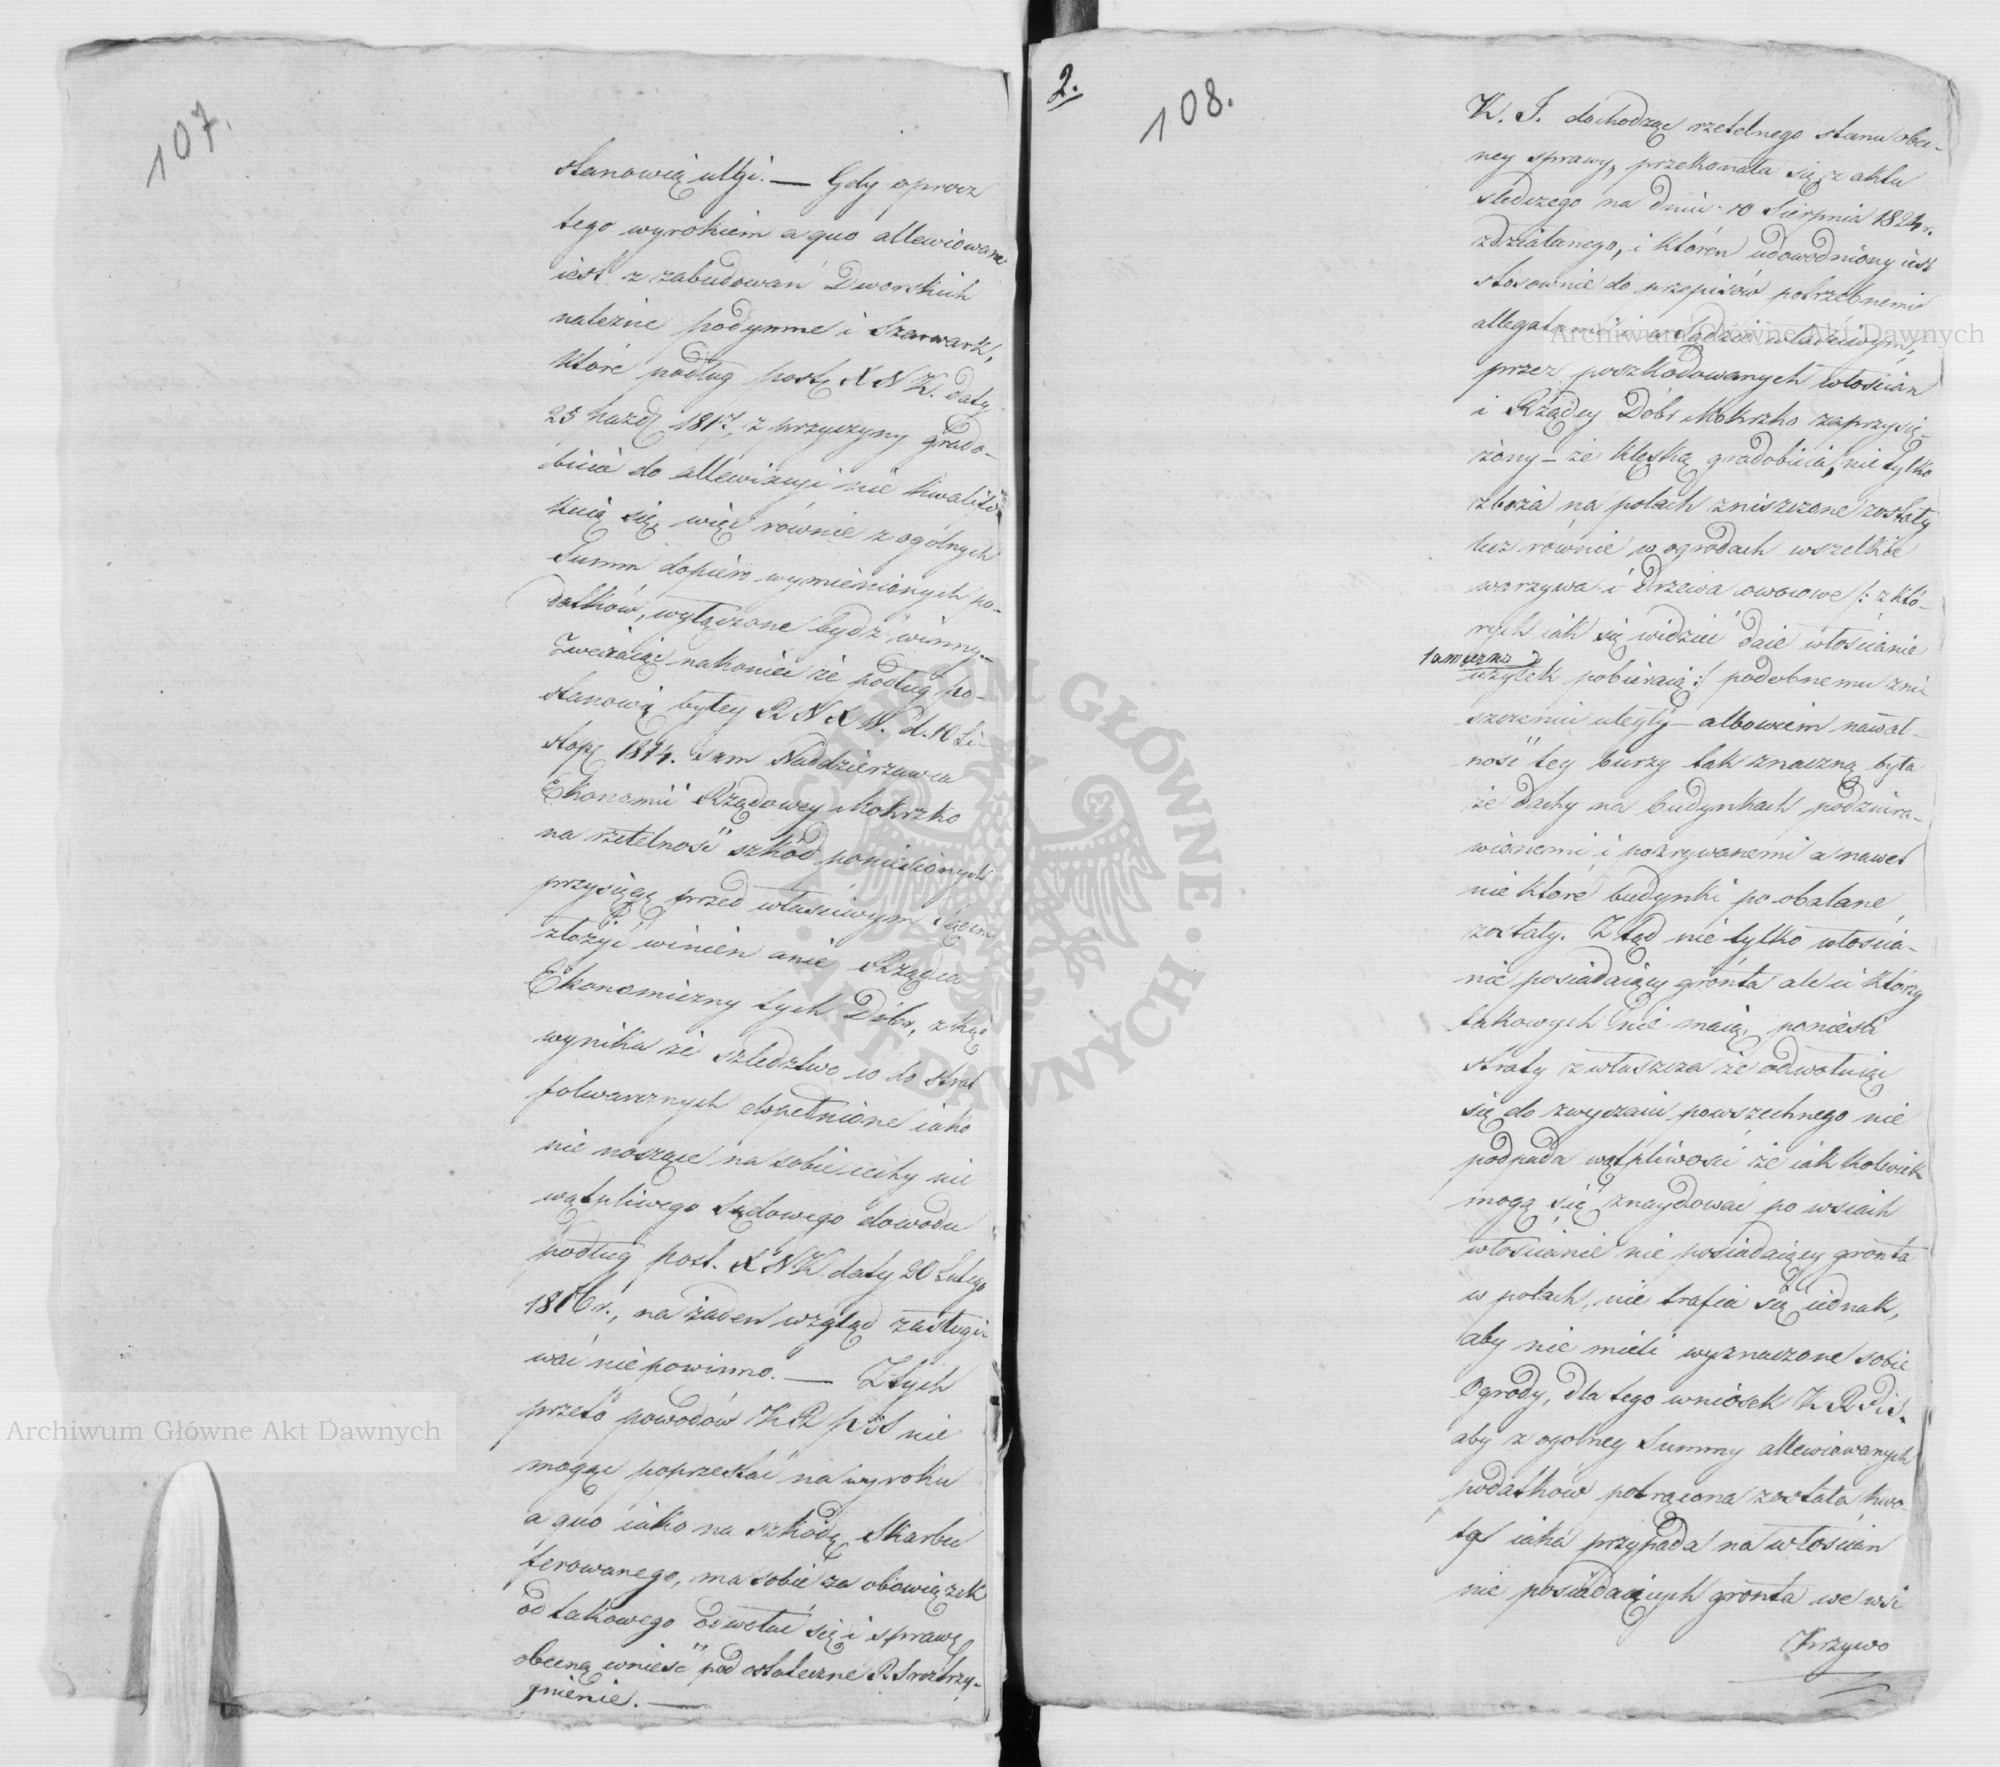 107.
stanowią ulgi. — Gdy oprocz
tego wyrokiem a quo allewiowane
iest z zabudowań Dworskich
należne podymne i Szarwark,
które podług post X N K. daty
25 Pazdz 1817, z przyczyny grado-
bicia do allewiacyi nie kwalifi
kuią się, więc równie z ogólnych
Summ dopiero wymienionych po-
datków, wyłączone bydź winny.—
Zważaiąc nakoniec że podług po-
stanowi byłey R N X W. d. 10 Li-
stop 1814. sam Naddzierżawca
Ekonomii Rządowey Mokrzko
na rzetelność szkód poniesionych
przysięgę przed właściwym Sądem
złożyć winien a nie Rządca
Ekonomiczny tych Dóbr, zkąd
wynika że szledztwo co do strat
folwarcznych dopełnione iako
nie noszące na sobie cechy nie
wątpliwego Sądowego dowodu
podług post. X N K. daty 20 Lutego
1816 r., na żaden wzgląd zasługi
wać nie powinno. — Z tych
przeto powodów K R P i S nie
mogąc poprzestać na wyroku
a quo iako na szkodę Skarbu
ferowanego, ma sobie za obowiązek
od takowego odwołać się i sprawę
obecną wnieść pod ostateczne R S roztrzy-
gnienie. —
2.
108.
K. I. dochodząc rzetelnego stanu obec-
ney sprawy, przekonała się z aktu
sledczego na dniu 10 Sierpnia 1824 r.
zdziałanego, i któren udowodniony iest
stosownie do przepisów potrzebnemi
allegatami w Sądzie właściwym,
przez poszkodowanych włościan
i Rządcy Dóbr Mokrzko zaprzysię-
żony — że klęską gradobicia, nie tylko
zboża na polach zniszczone zostały
lecz równie w ogrodach wszelkie
warzywa i Drzewa owocowe /: z któ-
rych iak się widzieć daie włościanie
tameczni
użytek pobieraią :/ podobnemu zni
szczeniu uległy — albowiem nawał-
ność tey burzy tak znaczną była
że dachy na budynkach podziura-
wionemi i pozrywanemi a nawet
nie które budynki poobalane
zostały. Z tąd nie tylko włościa-
nie posiadaiący gronta ale ci którzy
takowych nie maią, ponieśli
straty zwłaszcza że odwołuiąc
się do zwyczaiu powszechnego nie
podpada wątpliwości że iak kolwiek
mogą się znaydować po wsiach
włościanie nie posiadaiący gronta
w polach, nie trafia się iednak,
aby nie mieli wyznaczone sobie
Ogrody, dla tego wniosek K R P i S.
aby z ogolney Summy allewiowanych
podatków potrącona została kwo-
ta iaka przypada na włościan
nie posiadaiących gronta we wsi
Krzywo
Archiwum Główne Akt Dawnych
Archiwum Główne Akt Dawnych
ARCHIWUM GŁÓWNE · AKT DAWNYCH ·